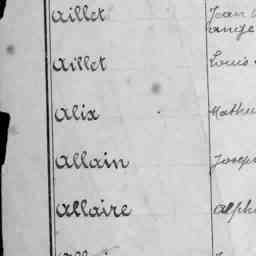 Aillet Jean
ange
Aillet Louis
Alix Mathu
Allain Josep
Allaire Alph